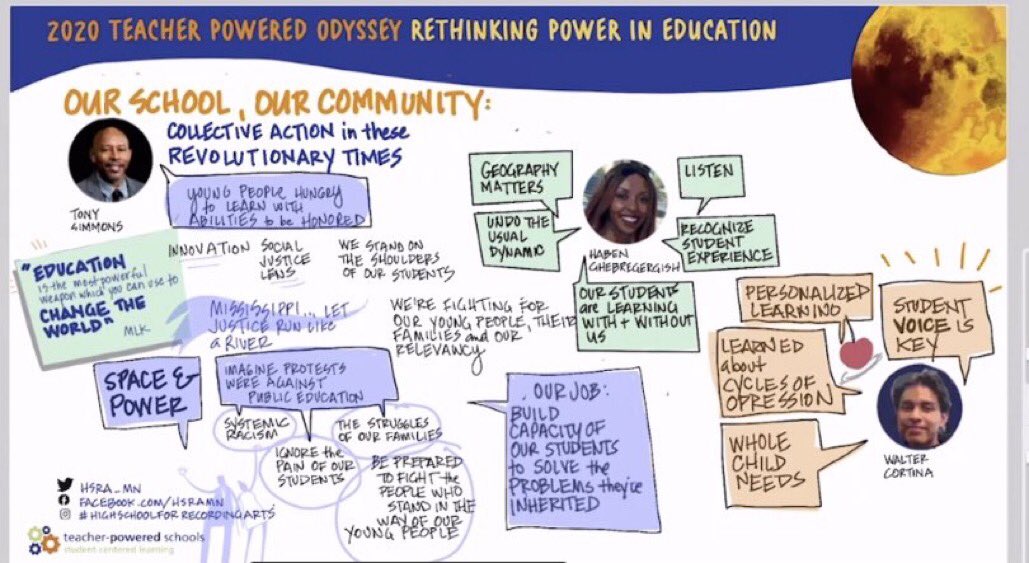 2020 TEACHER POWERED ODYSSEY RETHINKING POWER IN EDUCATION
OUR SCHOOL, OUR COMMUNITY:
COLLECTIVE ACTION in these
REVOLUTIONARY TIMES
TONY
SIMMONS
YOUNG PEOPLE HUNGRY
to LEARN WITH
ABILITIES to be HONORED
INNOVATION
SOCIAL
JUSTICE
LENS
WE STAND ON
THE SHOULDERS
OF OUR STUDENTS
"EDUCATION
is the most powerful
weapon which you can use to
CHANGE THE
WORLD"
MLK
MISSISSIPPI... LET
JUSTICE RUN LIKE
a RIVER
WE'RE FIGHTING FOR
OUR YOUNG PEOPLE, THEIR
FAMILIES and OUR
RELEVANCY
SPACE &
POWER
IMAGINE PROTESTS
WERE AGAINST
PUBLIC EDUCATION
SYSTEMIC
RACISM
THE STRUGGLES
OF OUR FAMILIES
IGNORE the
PAIN OF OUR
STUDENTS
BE PREPARED
TO FIGHT the
PEOPLE WHO
STAND IN THE
WAY OF OUR
YOUNG PEOPLE
GEOGRAPHY
MATTERS
UNDO THE
USUAL
DYNAMIC
HABEN
GHEBREGERGISH
LISTEN
RECOGNIZE
STUDENT
EXPERIENCE
OUR STUDENTS
are LEARNING
WITH + WITHOUT
US
OUR JOB:
BUILD
CAPACITY OF
OUR STUDENTS
to SOLVE the
PROBLEMS they've
INHERITED
PERSONALIZED
LEARNING
LEARNED
about
CYCLES OF
OPRESSION
WHOLE
CHILD
NEEDS
STUDENT
VOICE IS
KEY
WALTER
CORTINA
HSRA_MN
FACEBOOK.COM/HSRAMN
#HIGHSCHOOLFORRECORDINGARTS
teacher-powered schools
student centered learning